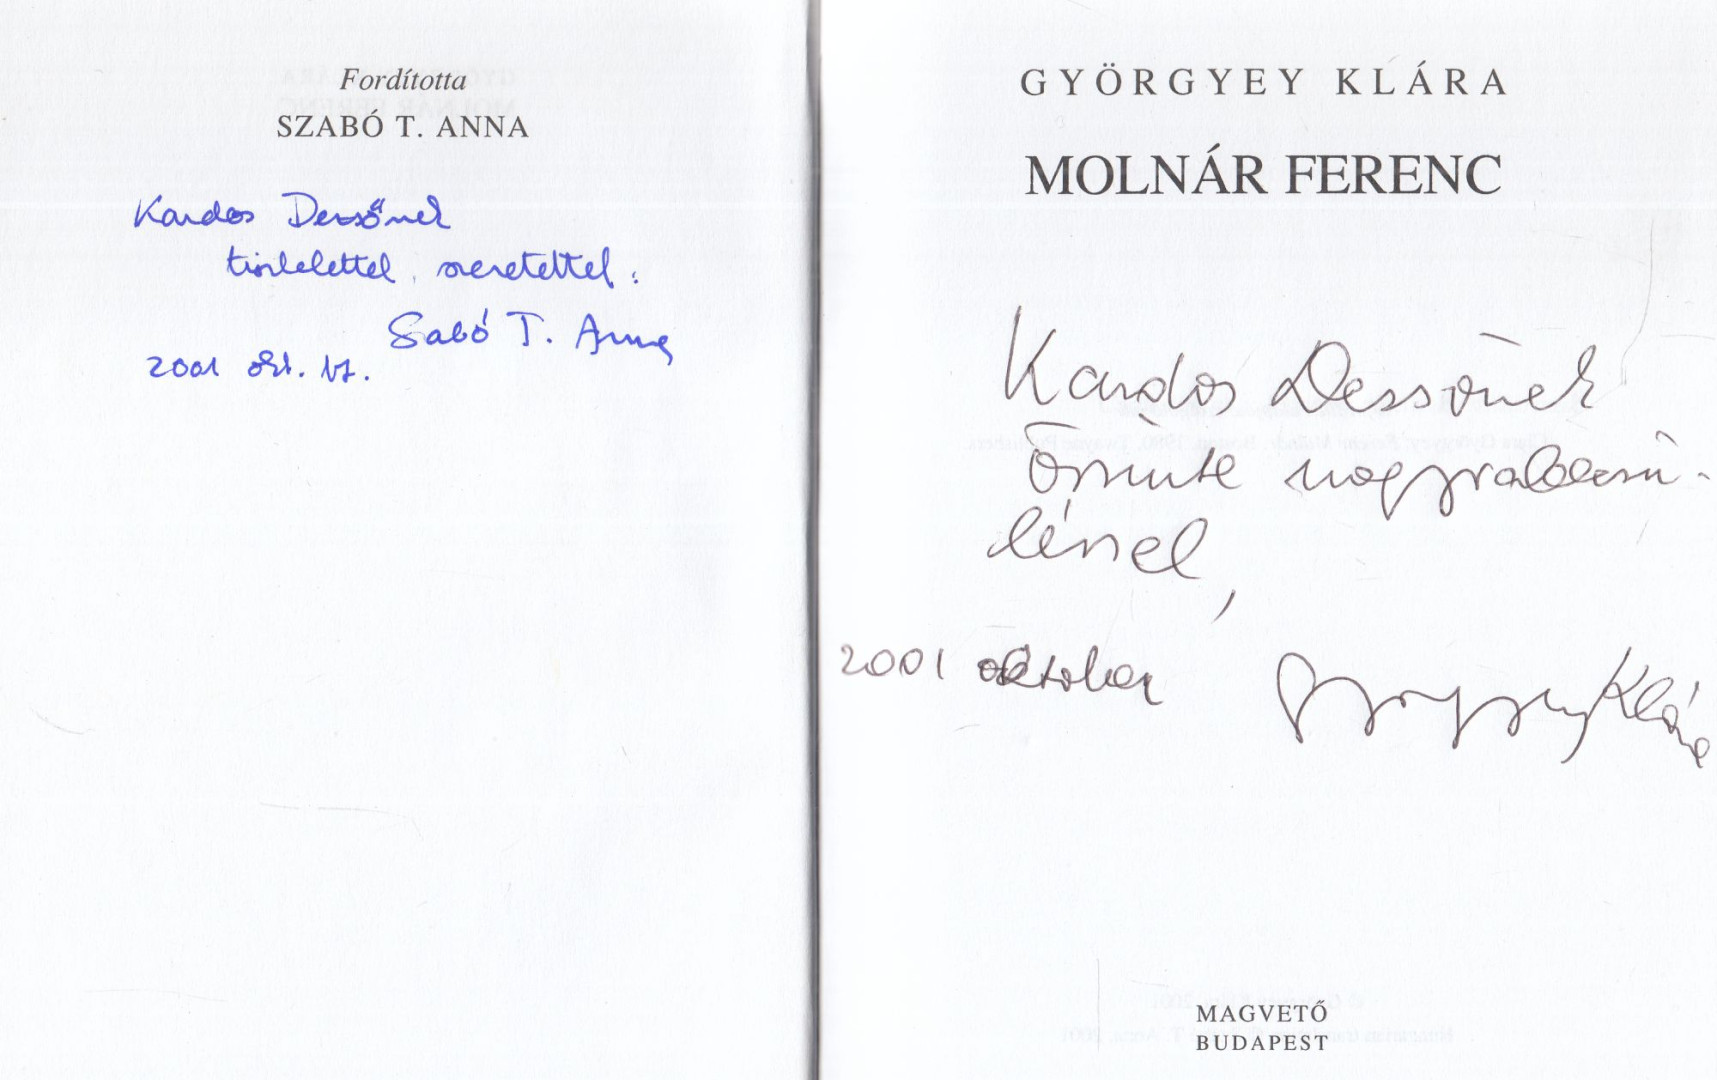 Fordította
SZABÓ T. ANNA
Kardos Dezsőnek
tisztelettel, szeretettel:
Szabó T. Anna
2001 okt. 17.
GYÖRGYEY KLÁRA
MOLNÁR FERENC
Kardos Dezsőnek
Őszinte nagyrabecsü-
léssel,
2001 október Györgyey Klára
MAGVETŐ
BUDAPEST